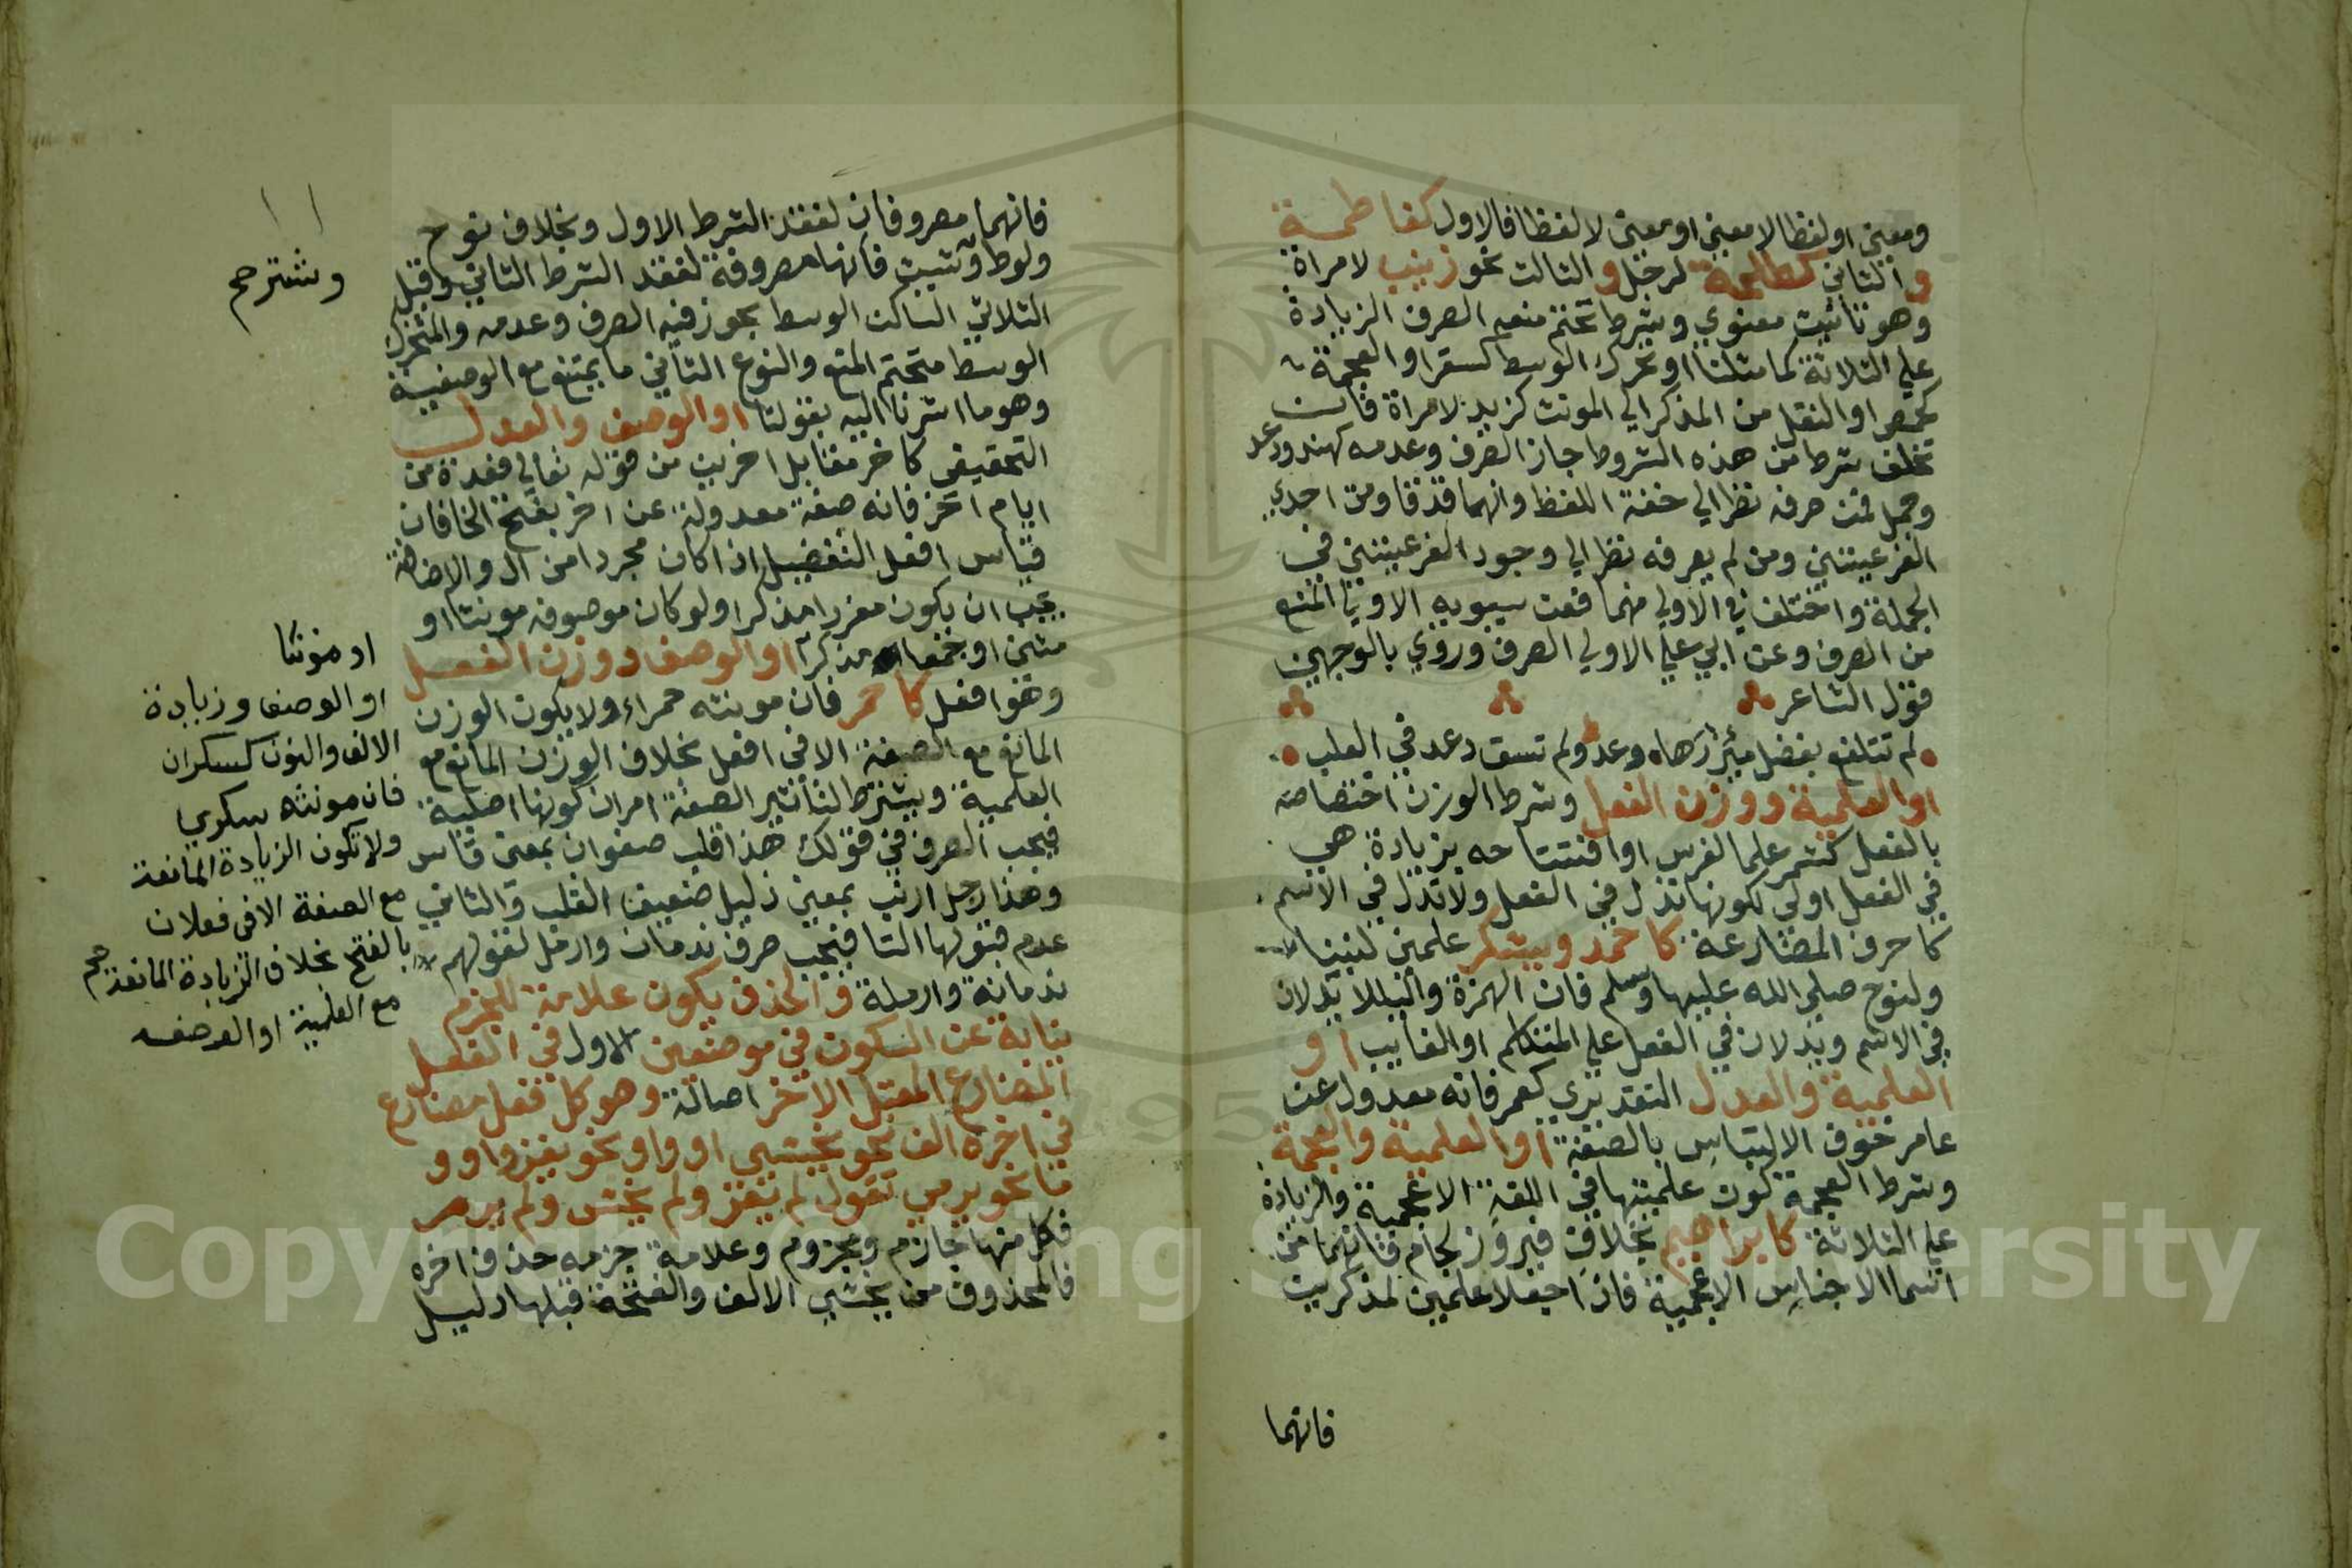 ومعنى او لفظا لا معنى او معنى لا لفظا فالاول كفاطمة
و الثاني كطلحة لرجل و الثالث نحو زينب لامراة
وهو تانيث معنوي وشرط تحتم منعه الصرف الزيادة
علي الثلاثة كما مثلنا او تحرك الوسط كسقر او العجمة
كحمص او النقل من المذكر الي المونث كزيد لامراة فان
تخلف شرط من هذه الشروط جاز الصرف وعدمه كهند ودعد
وجمل فمن صرفه نظر الي خفة اللفظ وانهما قد قاومت احدي
الفرعيتين ومن لم يصرفه نظر الي وجود الفرعيتين في
الجملة واختلف في الاولي منهما فعن سيبويه الاولي المنع
من الصرف وعن ابي علي الاولي الصرف وروي بالوجهين
قول الشاعر
لم تتلفع بفضل مئزرها دعد ولم تسق دعد في العلب
او العلمية ووزن الفعل وشرط الوزن اختصاصه
بالفعل كشمر علما لفرس او افتتاحه بزيادة هي
في الفعل اولي لكونها تدل في الفعل ولا تدل في الاسم
كاحرف المضارعة كاحمد ويشكر علمين لنبينا
ولنوح صلي الله عليهما وسلم فان الهمزة واليا لا يدلان
في الاسم ويدلان في الفعل علي المتكلم او الغايب او
العلمية والعدل التقديري كعمر فانه معدول عن
عامر خوف الالتباس بالصفة او العلمية والعجمة
وشرط العجمة كون علميتها في اللغة الاعجمية والزيادة
علي الثلاثة كابراهيم بخلاف فيروز لجام فانهما من
اسما الاجناس الاعجمية فاذا جعلا علمين لمذكرين
فانهما
فانهما مصروفان لفقد الشرط الاول وبخلاف نوح
ولوط وشيث فانها مصروفة لفقد الشرط الثاني وقيل
الثلاثي الساكن الوسط يجوز فيه الصرف وعدمه والمتحرك
الوسط متحتم المنع والنوع الثاني ما يمتنع مع الوصفية
وهو ما اشرنا اليه بقولنا او الوصف والعدل
التحقيقي كاخر مقابل اخرين من قوله تعالي فعدة من
ايام اخر فانه صفة معدولة عن اخر بفتح الخا فان
قياس افعل التفضيل اذا كان مجردا من ال والاضافة
يجب ان يكون مفردا مذكرا ولو كان موصوفه مونثا او
مثنى او جمعا مذكرا او الوصف ووزن الفعل
وهو افعل كاحمر فان مونثه حمراء ولا يكون الوزن
المانع مع الصفة الا في افعل بخلاف الوزن المانع مع
العلمية ويشترط لتاثير الصفة امران كونها اصلية
فيجب الصرف في قولك هذا قلب صفوان بمعنى قاس
وهذا رجل ارنب بمعنى ذليل ضعيف القلب والثاني
عدم قبولها التا فيجب صرف ندمان وارمل لقولهم
ندمانة وارملة والحذف يكون علامة للجزم
نيابة عن السكون في موضعين الاول في الفعل
المضارع المعتل الاخر اصالة وهو كل فعل مضارع
في اخره الف نحو يخشي او واو نحو يغزوا و
يا نحو يرمي تقول لم يغز ولم يخش ولم يرم
فكل منها جازم ومجزوم وعلامة جزمه حذف اخره
فالمحذوف من يخشي الالف والفتحة قبلها دليل
او مونثا
او الوصف وزيادة
الالف والنون كسكران
فان مونثه سكري
ولا تكون الزيادة المانعة
مع الصفة الا في فعلان
بالفتح بخلاف الزيادة المانعة
مع العلمية او الوصف
Copyright © King Saud University